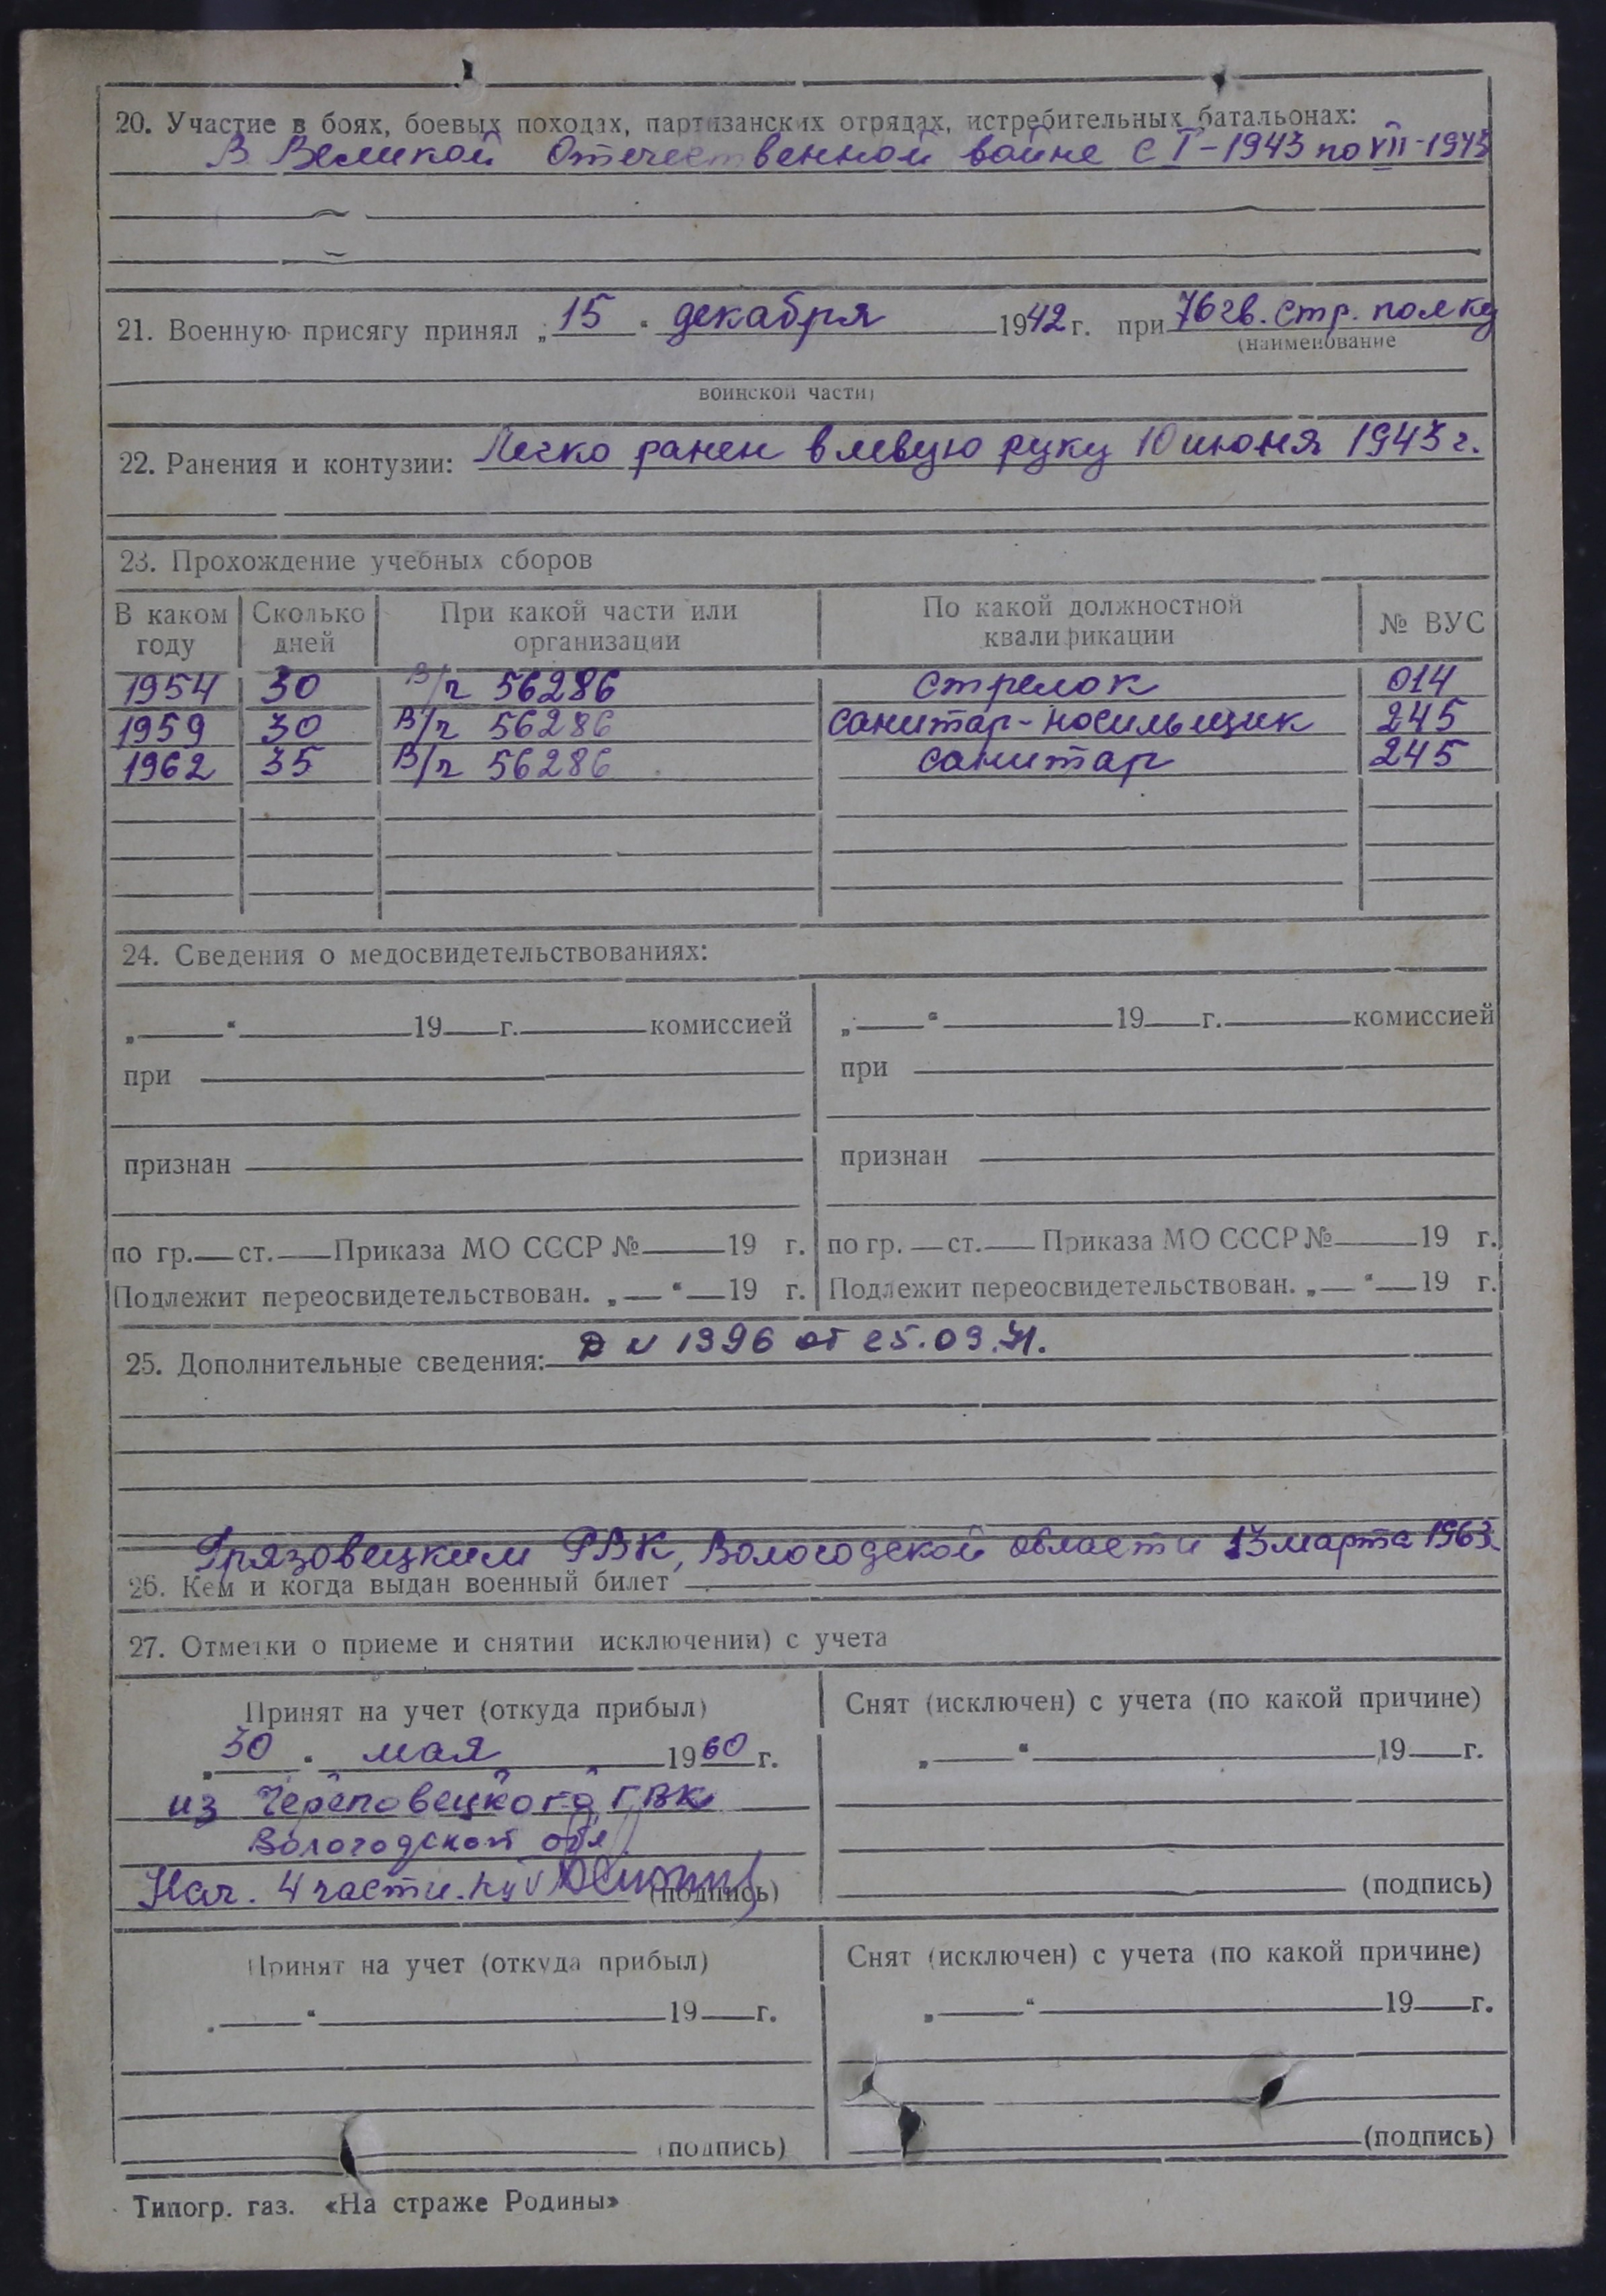 20. Участие в боях, боевых походах, партизанских отрядах, истребительных батальонах:
В Великой Отечественной войне с I-1943 по VII-1943
21. Военную присягу принял „15" декабря 1942 г. при 76 гв. стр. полку
(наименование
воинской части)
22. Ранения и контузии: Легко ранен в левую руку 10 июня 1943 г.
23. Прохождение учебных сборов
В каком году Сколько дней При какой части или организации По какой должностной квалификации № ВУС
1954 30 В/ч 56286 стрелок 014
1959 30 В/ч 56286 санитар-носильщик 245
1962 35 В/ч 56286 санитар 245
24. Сведения о медосвидетельствованиях:
„ " 19 г. комиссией „ " 19 г. комиссией
при при
признан признан
по гр. ст. Приказа МО СССР № 19 г. по гр. ст. Приказа МО СССР № 19 г.
Подлежит переосвидетельствован. „ " 19 г. Подлежит переосвидетельствован. „ " 19 г.
25. Дополнительные сведения: N 1396 от 25.09.71.
Грязовецким РВК, Вологодской области 13 марта 1963
26. Кем и когда выдан военный билет
27. Отметки о приеме и снятии исключении) с учета
Принят на учет (откуда прибыл) Снят (исключен) с учета (по какой причине)
„30" мая 1960 г. „ " 19 г.
из Череповецкого ГВК
Вологодской обл
Нач. 4 части (подпись) (подпись)
Принят на учет (откуда прибыл) Снят (исключен) с учета (по какой причине)
„ " 19 г. „ " 19 г.
(подпись) (подпись)
Типогр. газ. «На страже Родины»